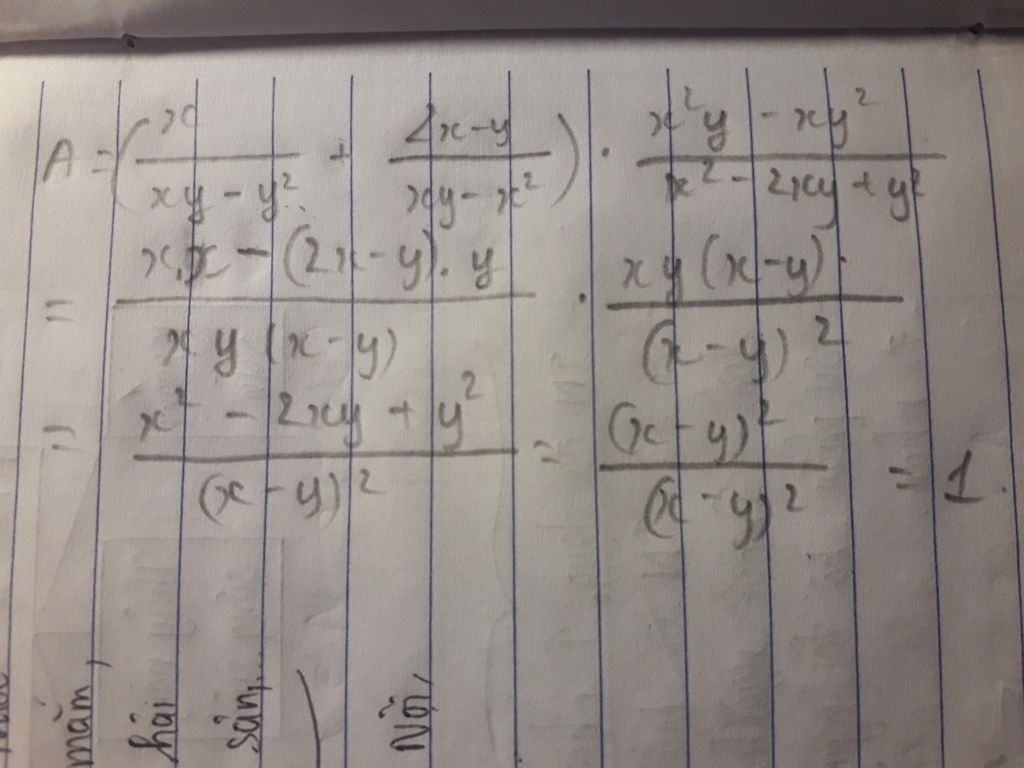 A = (x / (xy - y²) + (2x - y) / (xy - x²)) · (x²y - xy²) / (x² - 2xy + y²)
= (x.x - (2x - y).y) / (xy(x - y)) · (xy(x - y)) / (x - y)²
= (x² - 2xy + y²) / (x - y)² = (x - y)² / (x - y)² = 1.
mắm,
hải
sản,..
Nội,